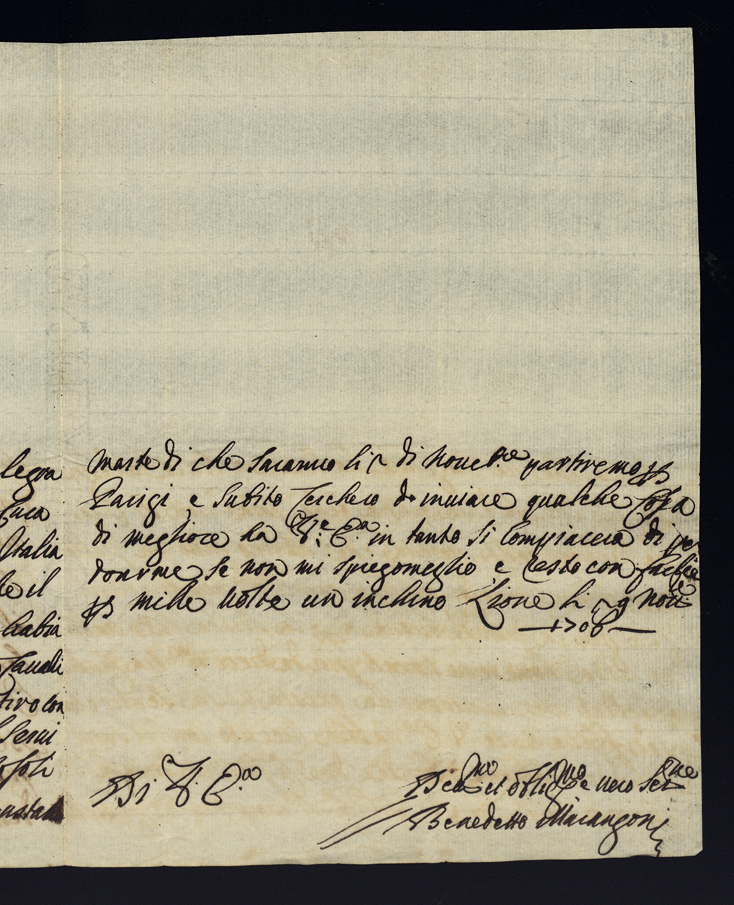 legra
Luca
Italia
le il
habia
Cauali
tivo con
Serui
soli
martedi che Saranno li di Noue.bre partiremo p
Parigi e Subito Cerchero de inuiare qualche Cosa
di megliore ha V.e E.a in tanto Si Compiacera di per
donarme se non mi spiegomeglio e resto con farlie
p mille uolte un inchino Lione li 9 Noue
1706
Di V. E.
e uero Ser.
Benedetto Marangoni